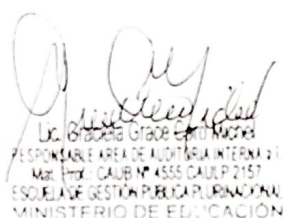 Lic. Graciela Grace
RESPONSABLE AREA DE AUDITORIA INTERNA a.i.
Mat. Prof.: CAUB Nº 4555 CAULP 2157
ESCUELA DE GESTION PUBLICA PLURINACIONAL
MINISTERIO DE EDUCACIÓN